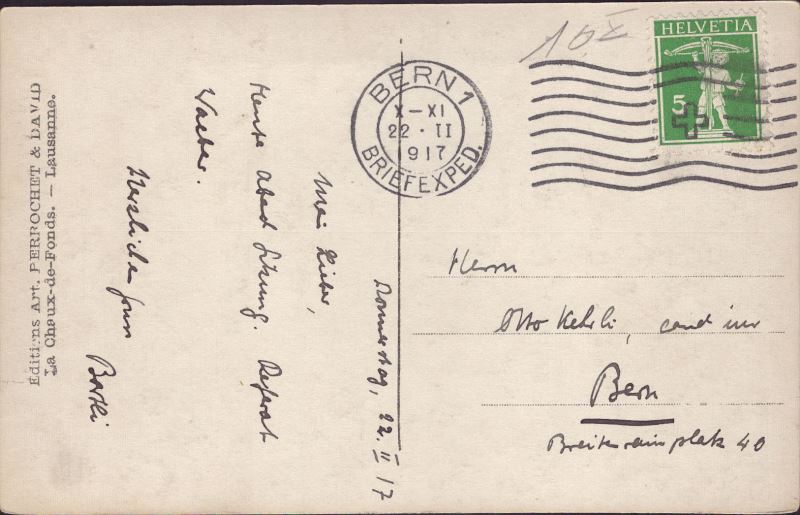 Editions Art. PERROCHET & DAVID
La Chaux-de-Fonds. — Lausanne.
Donnerstag, 22. II 17
Mein Lieber,
Heute Abend Sitzung. Referat
Waeber.
Herzlichen Gruss
BERN 1
X–XI
22·II
1917
BRIEFEXPED.
HELVETIA
5
Herrn
Otto Kehrli, cand iur
Bern
Breitenrainplatz 40